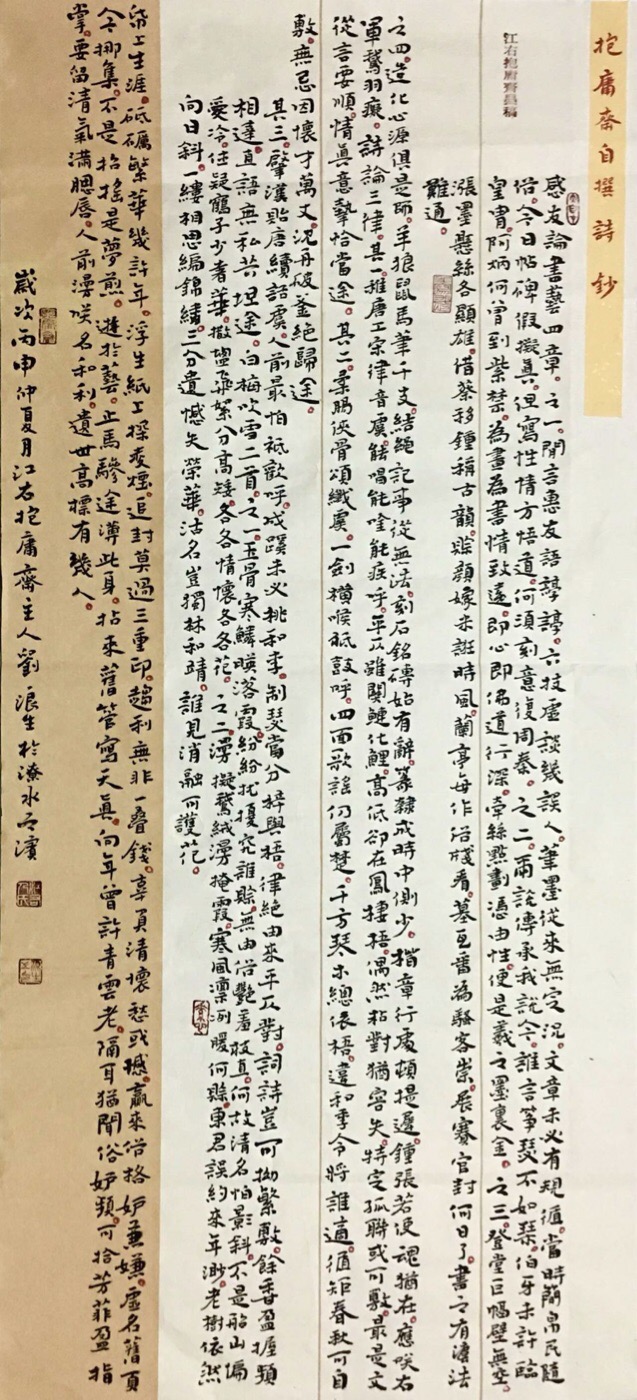 抱庸斋自撰詩鈔
江右抱庸齊吴稿
感友論書藝四章。之一、聞言惠友語諄諄。六技虚談幾誤人。筆墨從來無定況。文章未必有規循。當時簡帛民隨
俗。今日帖碑假擬真。但寫性情方悟道。何須刻意復周秦。之二、両說傳承我說今。誰言筝瑟不如琴。伯牙未許臨
皇胄。阿炳何曽到紫禁。為畫為書情致遠。即心即佛道行深。牽絲點劃憑由性。便是羲之墨裏金。之三、登堂巨幅壁無空
漲墨懸絲各顯雄。借蔡移鍾稱古韻。賒顏嫁米誑時風。蘭亭每作俗殘看。墓互番為騷客崇。展賽官封何日了。書之有法法
難通。
之四、造化心源俱是師。羊狼鼠馬筆千支。結繩記事從無法。刻石銘磚始有辭。篆隸成時中側少。楷章行處頓提遲。鍾張若使魂猶在。應咲右
軍鵞羽癡。詩論三律。其一、推唐工宋律音虞。能唱能噇能疾呼。平仄雖關鰱化鯉。高低卻在鳳棲梧。偶然粘對猶容失。特定孤聯或可敷。最是文
從言要順。情真意摯恰當途。其二、柔腸俠骨頌纖虞。一劍横喉祗鼓呼。四面歌謡仍屬楚。千方琴木總依梧。違和季令將誰適。循矩春秋可自
敷。無忌因懷才萬丈。沉舟破釜絕歸途。
其三、擘漢貽唐續語虞。人前最怕祗歡呼。成蹊未必桃和李。制瑟當分梓與梧。律絕由來平仄對。詞詩豈可拗繁敷。餘香盈握類
相逢。直語無私共坦途。白梅吹雪二首。之一、玉骨寒鱗暎落霞。紛紛扰擾究誰賒。無由俗艷羞枝直。何故清名怕影斜。不是船山偏
愛冷。任疑鶴子少著華。撒鹽飛絮分高矮。各各情懷各各花。之二、漫擬鵞絨漫掩霞。寒風凛冽暖何賒。東君誤約來年渺。老樹依然
向日斜。一縷相思編錦繡。三分遺憾失榮華。沽名豈獨林和靖。誰見消融可護花。
帋上生涯。砥礪繁華幾許年。浮生紙上探玄壇。追封莫過三重印。趨利無非一疊錢。辜負清懷愁或撼。贏來俗格妒兼嫌。虛名舊頁
今挪集。不是招搖是夢煎。遊於藝。上馬驂途溥此身。拈來舊管寫天真。向年曾許青雲老。隔耳猶聞俗妒頻。可拾芳菲盈指
掌。要留清氣滿腮唇。人前漫咲名和利。遺世高標有幾人。
歲次丙申仲夏月江右抱庸齋主人劉浪生於潦水之濱